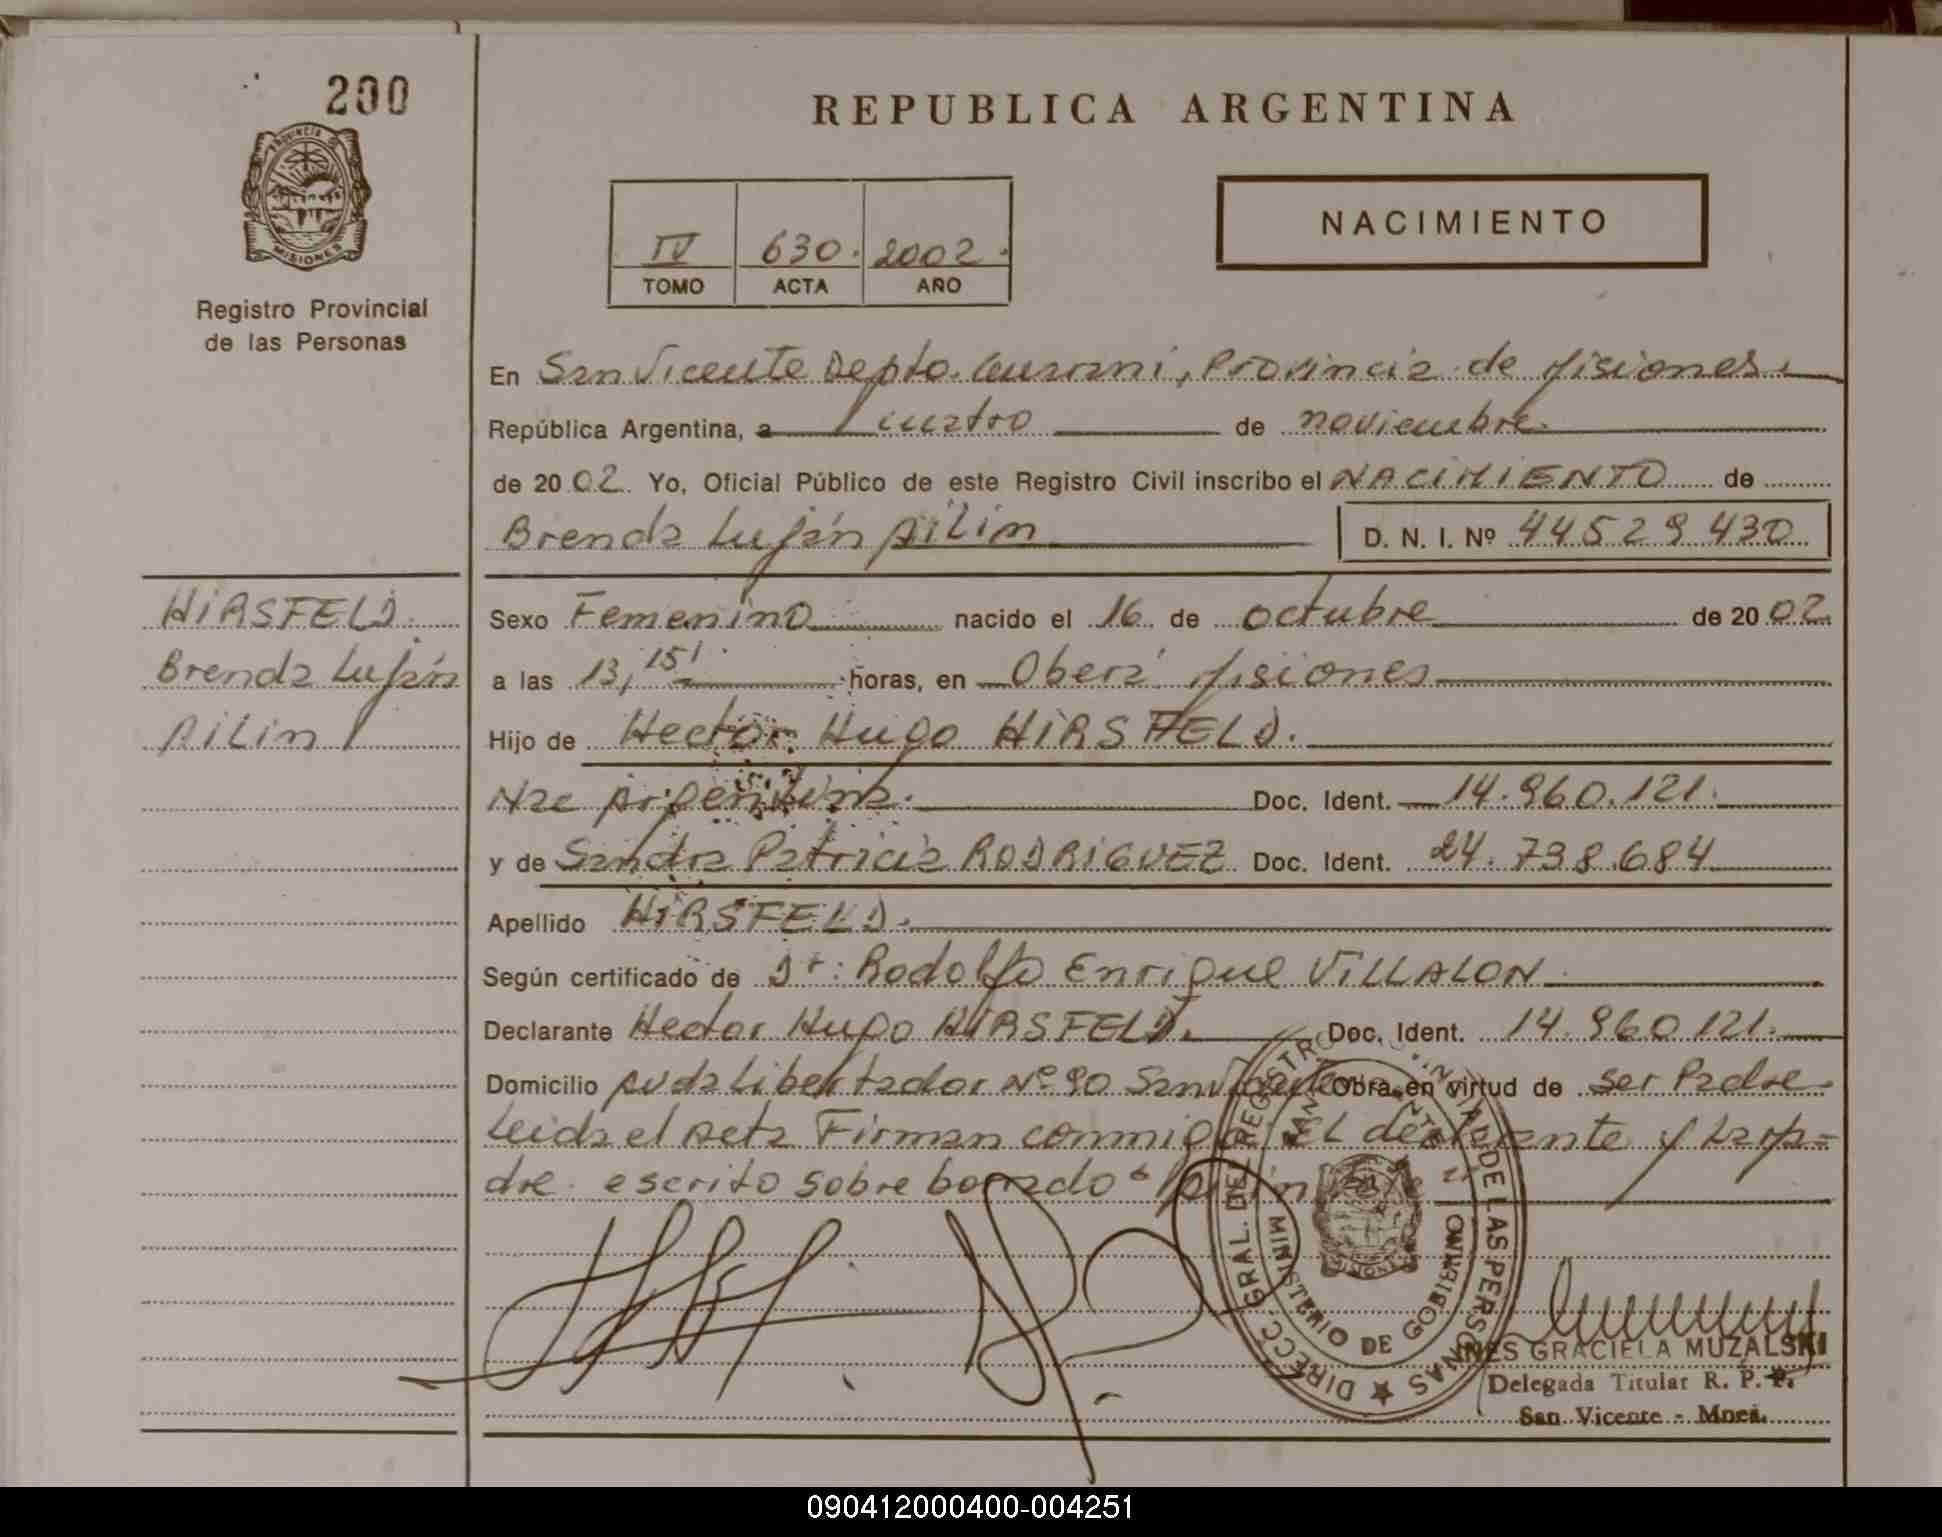 200
REPUBLICA ARGENTINA
PROVINCIA DE
MISIONES
NACIMIENTO
IV 630. 2002.
TOMO ACTA AÑO
Registro Provincial
de las Personas
En San Vicente Depto. Guarani, Provincia de Misiones
República Argentina, a cuatro de noviembre.
de 2002. Yo, Oficial Público de este Registro Civil inscribo el NACIMIENTO de
Brenda Luján Ailin D. N. I. Nº 44529430
HIRSFELD.
Brenda Luján
Ailin
Sexo Femenino nacido el 16 de octubre de 2002
a las 13,15' horas, en Oberá Misiones
Hijo de Hector Hugo HIRSFELD.
Nac Argentina. Doc. Ident. 14.960.121.
y de Sandra Patricia RODRIGUEZ Doc. Ident. 24.738.684
Apellido HIRSFELD.
Según certificado de Dr: Rodolfo Enrique VILLALON
Declarante Hector Hugo HIRSFELD. Doc. Ident. 14.960.121.
Domicilio Avda Libertador Nº 90 San Vicente Obra en virtud de ser Padre.
Leida el acta Firman conmigo El declarante y la ma=
dre. escrito sobre borrado
DIRECC. GRAL. DEL REGISTRO DE LAS PERSONAS
MINISTERIO DE GOBIERNO
MISIONES
INES GRACIELA MUZALSKI
Delegada Titular R. P. P.
San Vicente - Mnes.
090412000400-004251